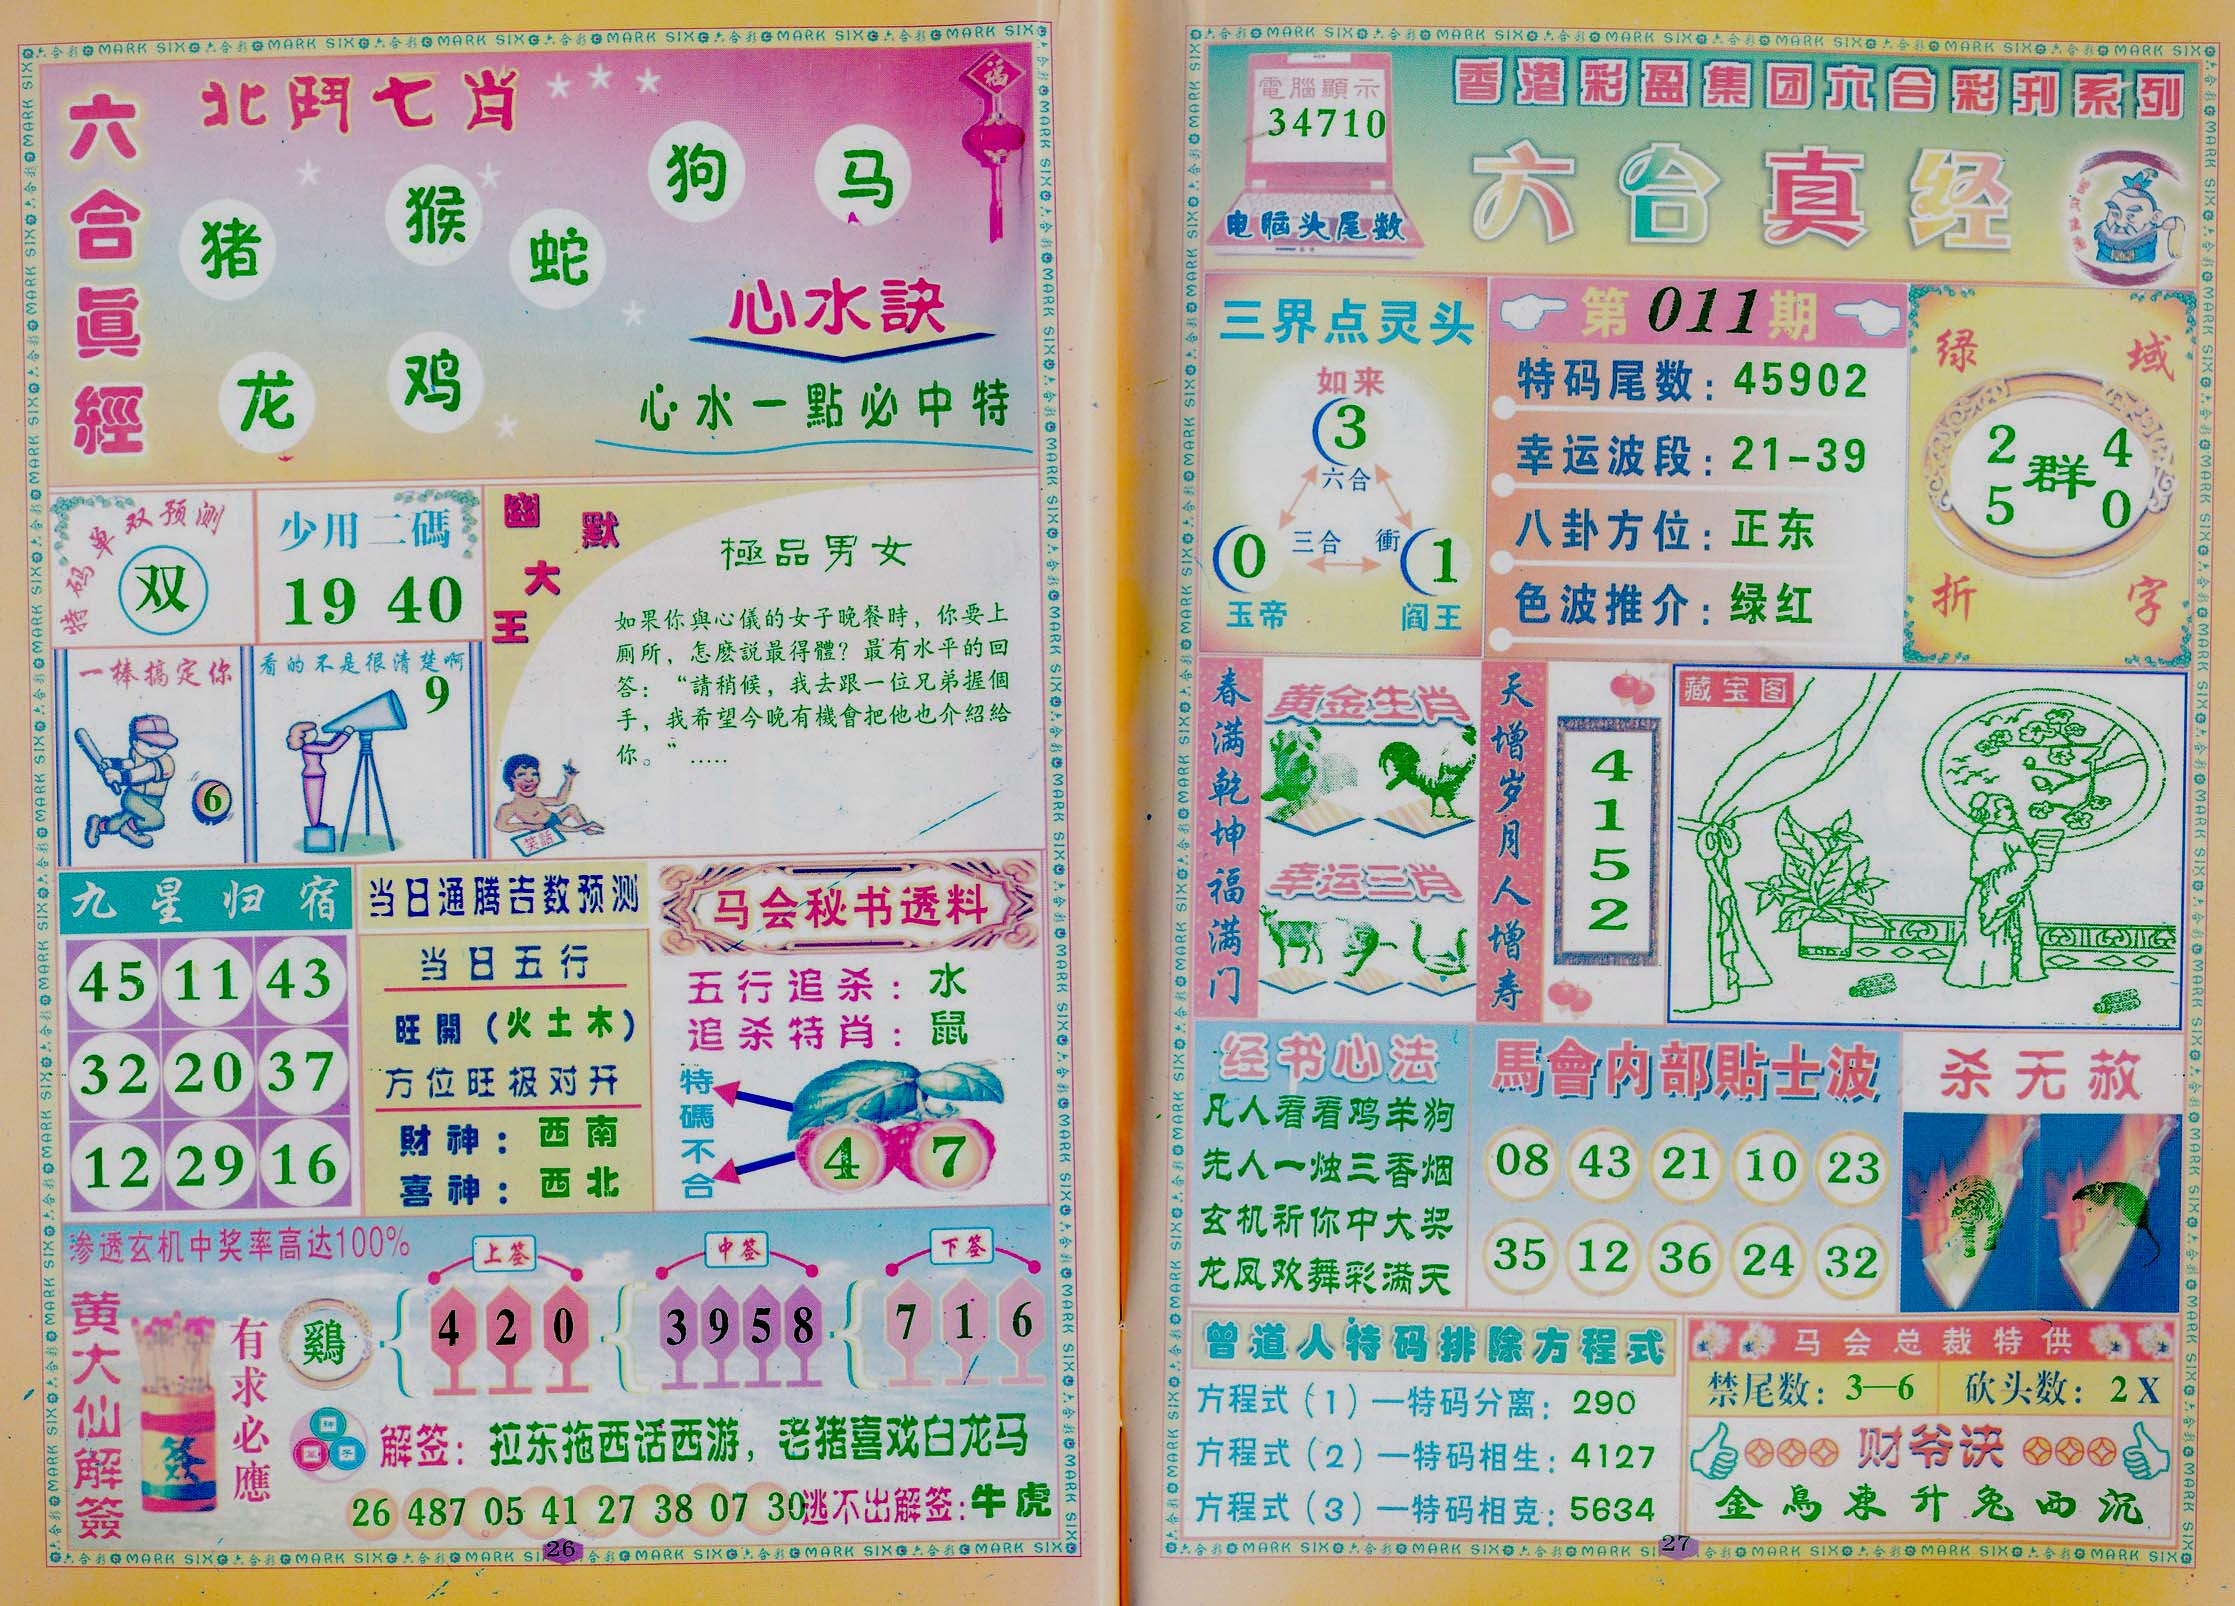 六合真經
北鬥七肖
猪
猴
蛇
狗
马
龙
鸡
福
心水訣
心水一點必中特
特码单双预测
双
少用二碼
19 40
一棒搞定你
6
看的不是很清楚啊
9
幽默大王
極品男女
如果你與心儀的女子晚餐時，你要上
厕所，怎麽説最得體？最有水平的回
答：“請稍候，我去跟一位兄弟握個
手，我希望今晚有機會把他也介紹給
你。” .....
笑話
九星归宿
45 11 43
32 20 37
12 29 16
当日通腾吉数预测
当日五行
旺開（火土木）
方位旺极对开
財神：西南
喜神：西北
马会秘书透料
五行追杀：水
追杀特肖：鼠
特碼不合
4 7
渗透玄机中奖率高达100%
黄大仙解簽
签
有求必應
鷄
上签
4 2 0
中签
3 9 5 8
下签
7 1 6
解签：拉东拖西话西游，老猪喜戏白龙马
26 487 05 41 27 38 07 30
逃不出解签：牛虎
26
電腦顯示
34710
电脑头尾数
香港彩盈集团六合彩刊系列
六合真经
三界点灵头
如来
3
六合
三合
衝
0
1
玉帝
阎王
第011期
特码尾数：45902
幸运波段：21-39
八卦方位：正东
色波推介：绿红
绿域折字
2 4
群
5 0
春满乾坤福满门
黄金生肖
幸运三肖
天增岁月人增寿
4
1
5
2
藏宝图
经书心法
凡人看看鸡羊狗
先人一烛三香烟
玄机祈你中大奖
龙凤欢舞彩满天
馬會内部貼士波
08 43 21 10 23
35 12 36 24 32
杀无赦
曾道人特码排除方程式
方程式（1）—特码分离：290
方程式（2）—特码相生：4127
方程式（3）—特码相克：5634
马会总裁特供
禁尾数：3—6 砍头数：2X
财爷诀
金鳥東升兔西沉
27